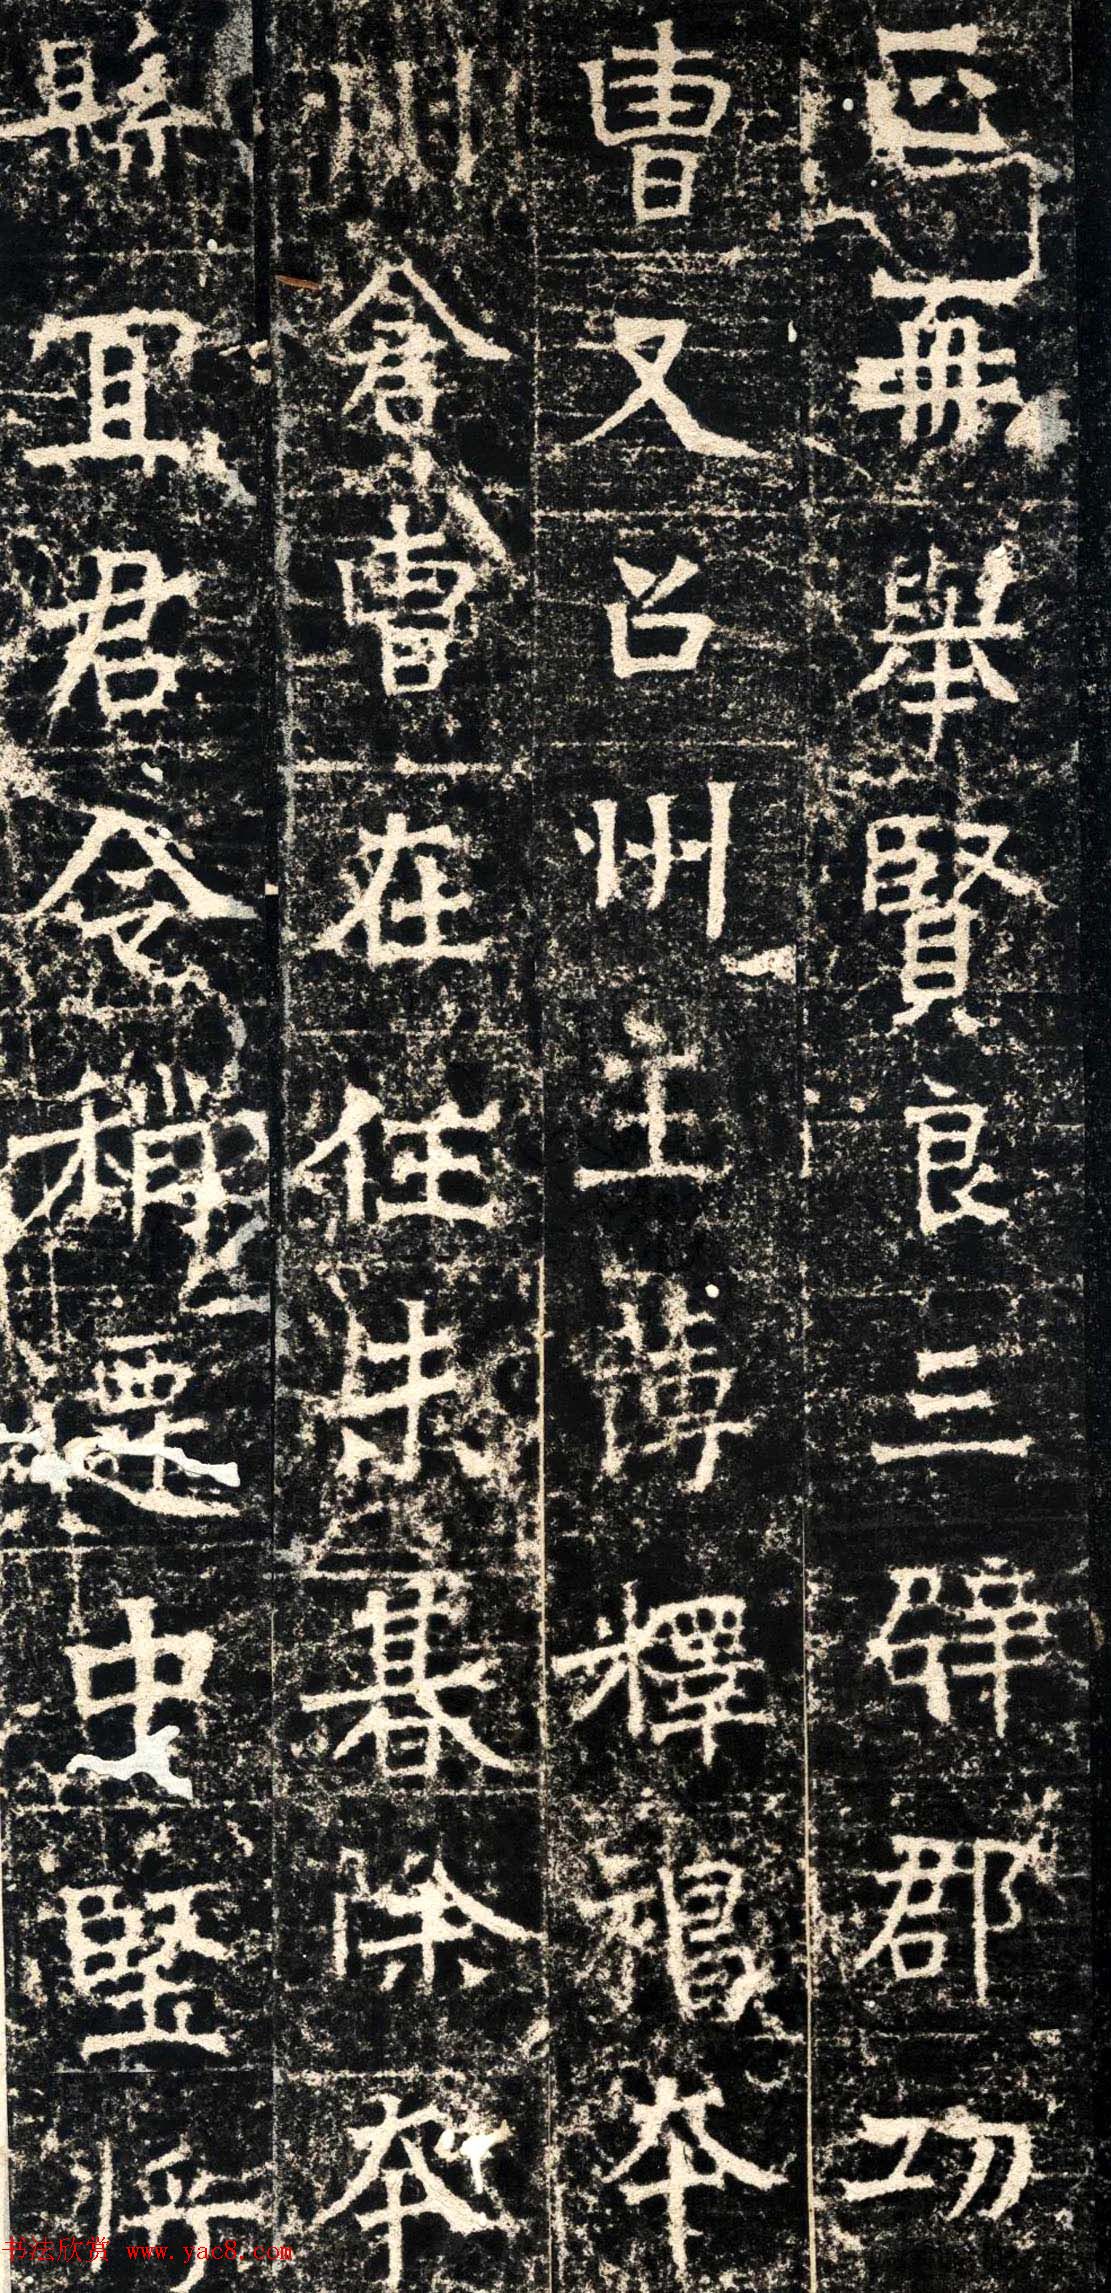 再舉賢良三辟郡功
曹又召州主簿釋褐本
州倉曹在任未朞除本
縣宜君令稍遷中堅將
书法欣赏 www.yac8.com